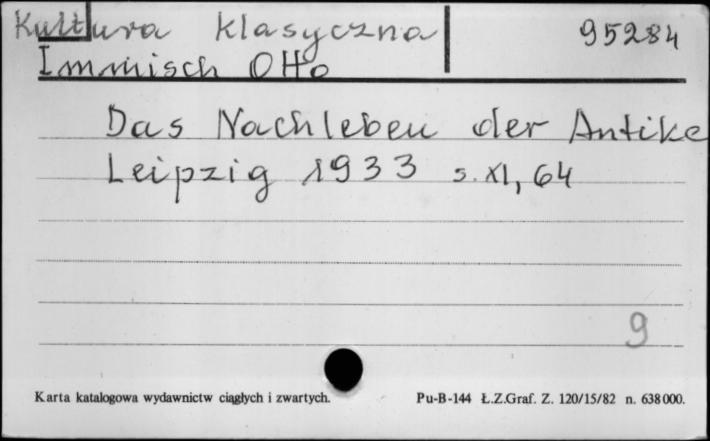 Kultura klasyczna 95284
Immisch Otto
Das Nachleben der Antike
Leipzig 1933 s. XI, 64
9
Karta katalogowa wydawnictw ciągłych i zwartych. Pu-B-144 Ł.Z.Graf. Z. 120/15/82 n. 638000.